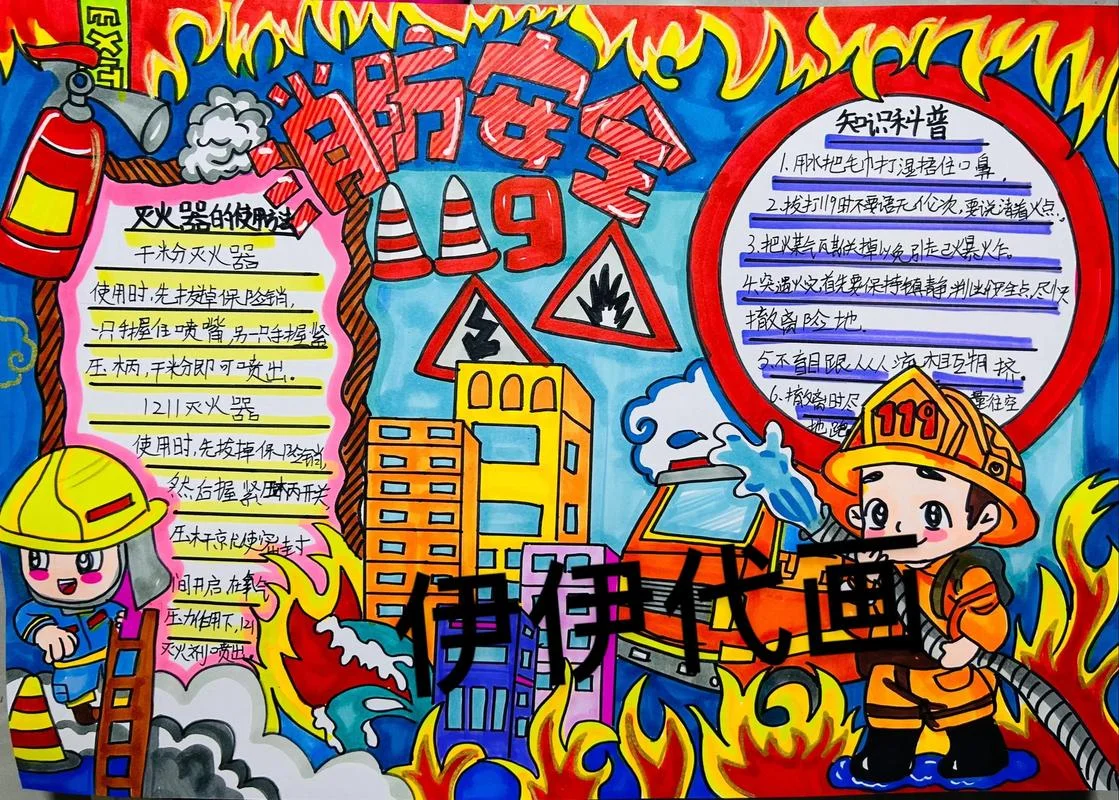 EXIT
消防安全
119
灭火器的使用方法
干米分灭火器
使用时,先拔掉保险销,
一只手握住喷嘴,另一只手握紧
压柄,干米分即可喷出。
1211灭火器
使用时,先拔掉保险销,
然后握紧压柄开关
压杆就使密封
间开启,在氧气
压力作用下,121
灭火剂喷出。
知识科普
1.用水把毛巾打湿捂住口鼻,
2.拔打119时不要语无伦次,要说清着火点.
3.把煤气
4.突遇火灾首先要保持镇静,判出安全点,尽快
撤离险地.
5.不盲目跟人人流相互拥挤.
6.撤离时尽
量往空
地跑
119
伊伊代画